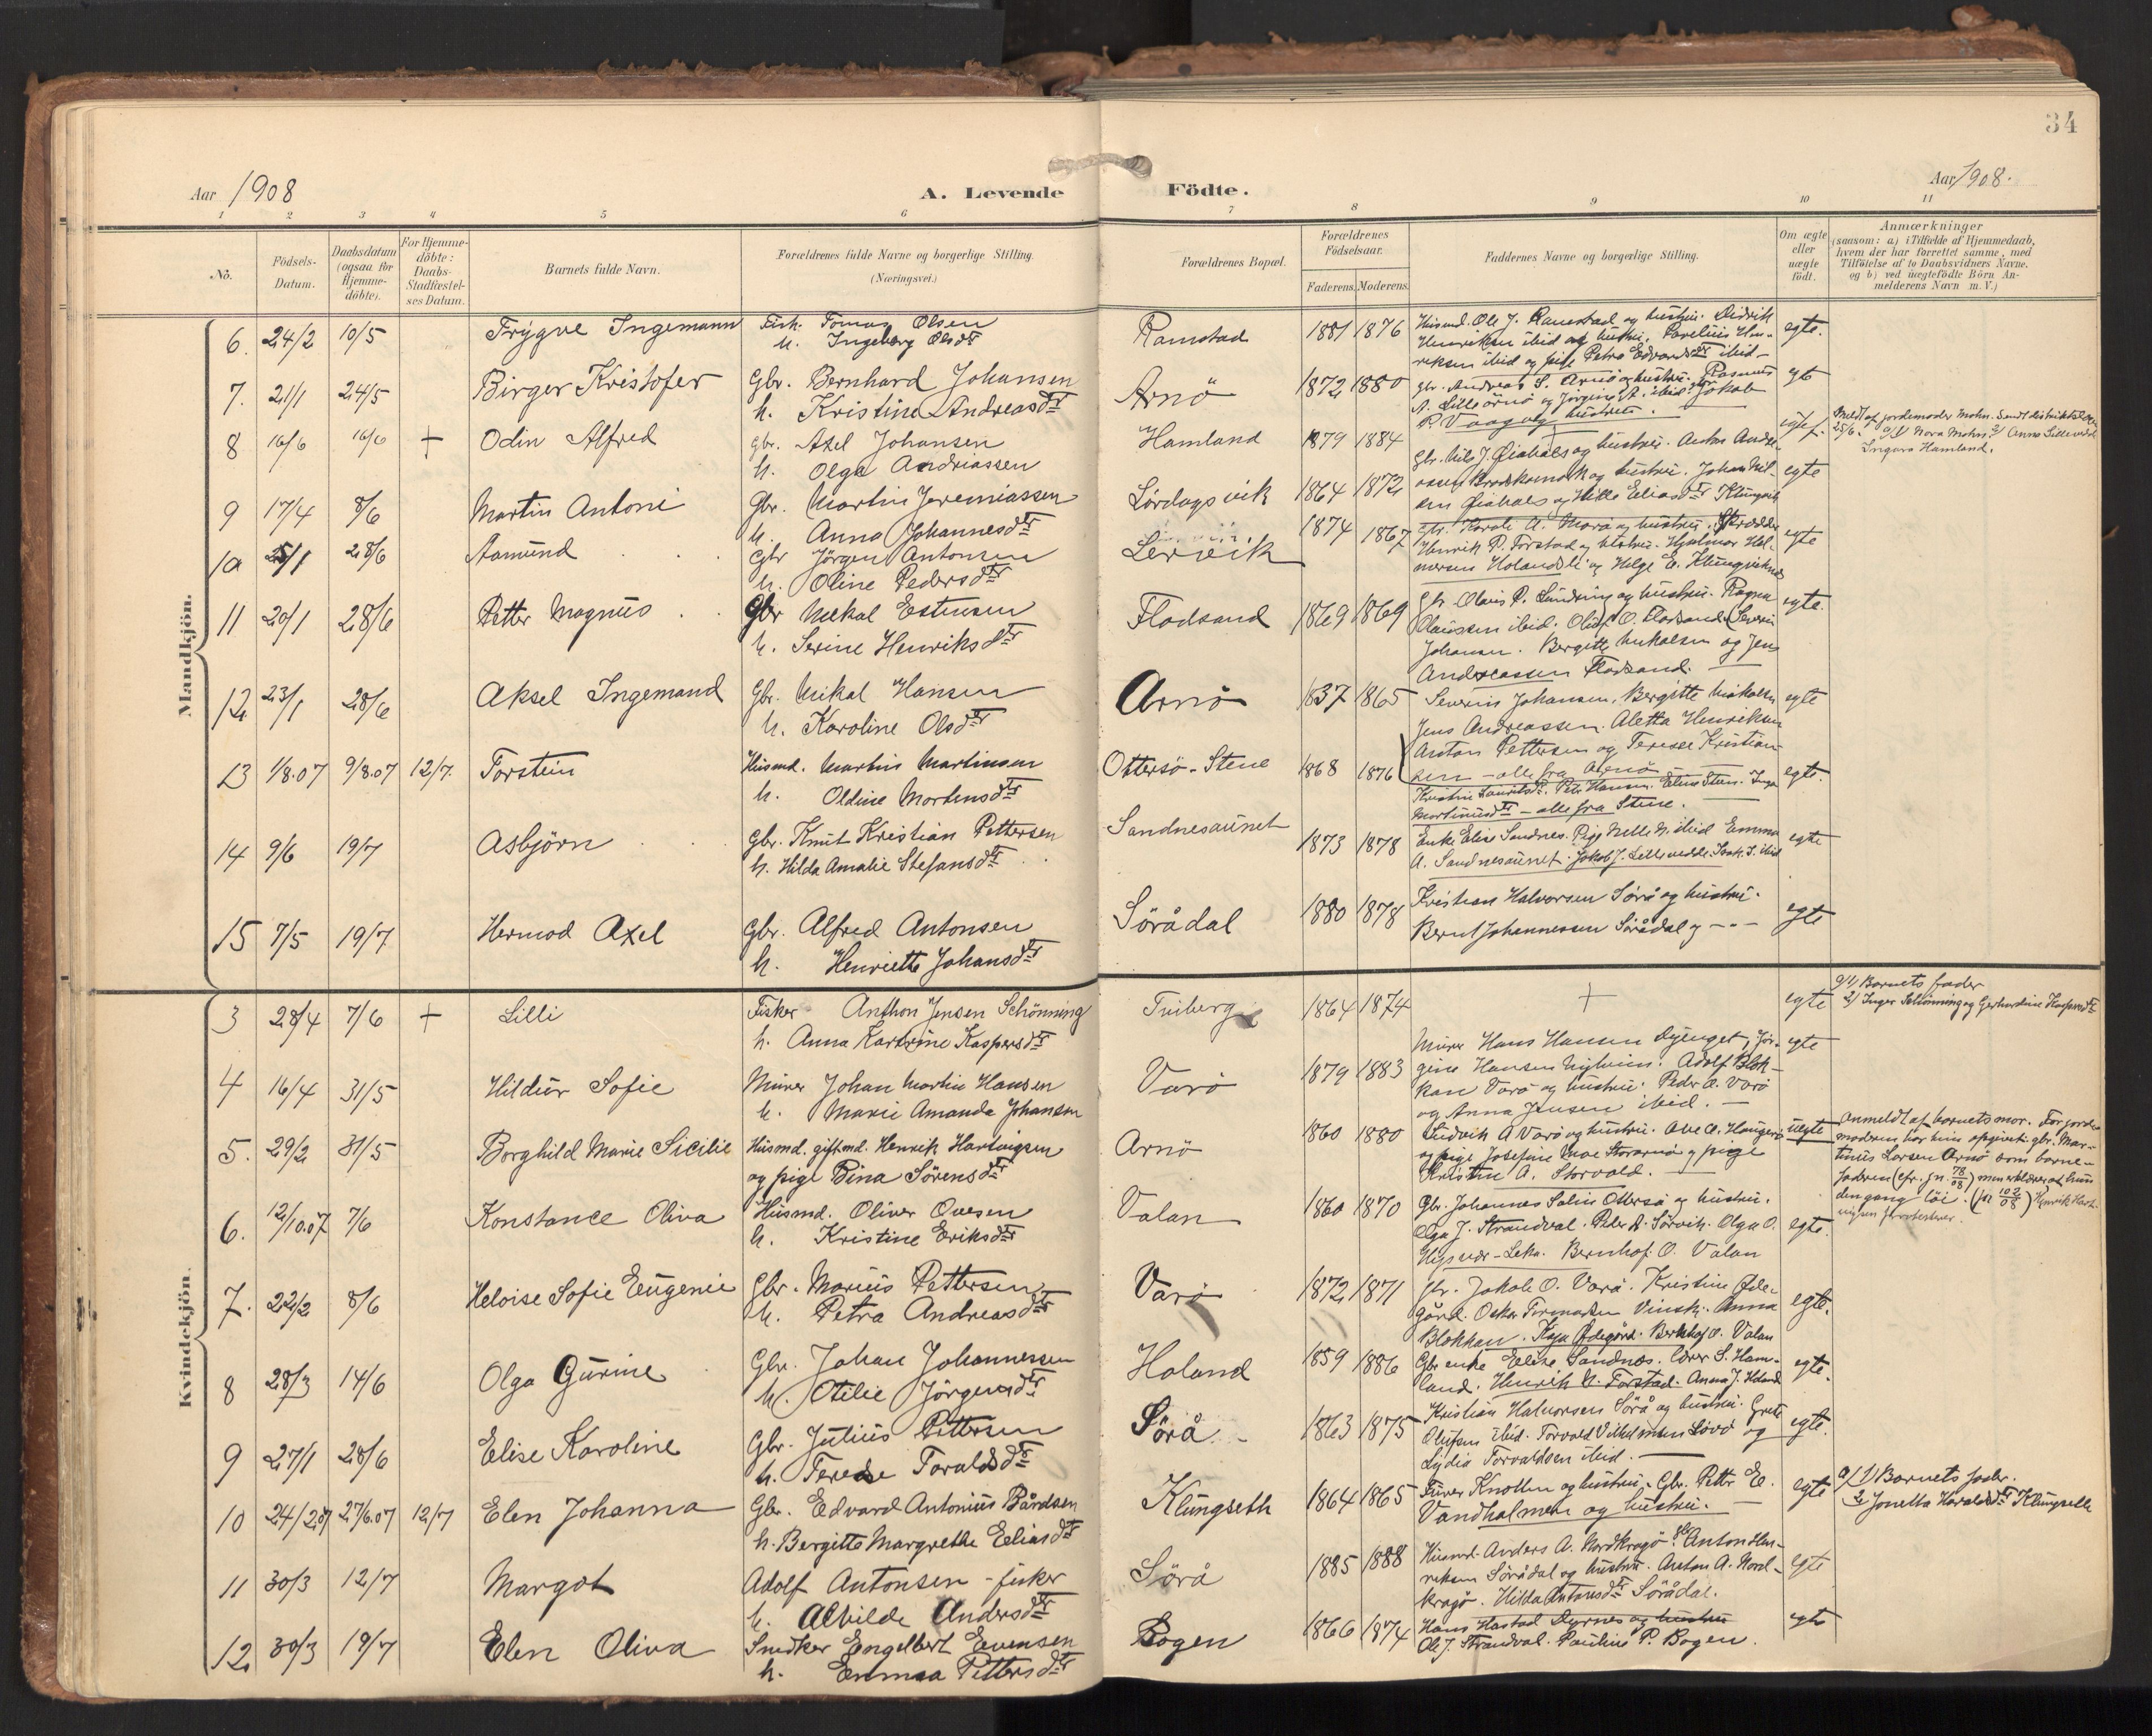 34
Aar 1908
A. Levende Födte.
Aar 1908.
1 2 3 4 5 6 7 8 9 10 11
No.
Födsels-Datum.
Daabsdatum (ogsaa for Hjemme-döbte).
For Hjemme-döbte: Daabs-Stadfæstel-ses Datum.
Barnets fulde Navn.
Forældrenes fulde Navne og borgerlige Stilling. (Næringsvei.)
Forældrenes Bopæl.
Forældrenes Födselsaar.
Faderens. Moderens.
Faddernes Navne og borgerlige Stilling.
Om ægte eller uægte födt.
Anmærkninger
(saasom: a) i Tilfælde af Hjemmedaab, hvem der har forrettet samme, med Tilföielse af to Daabsvidners Navne, og b) ved uægtefödte Börn An-melderens Navn m. V.)
Mandkjön.
6. 24/2 10/5 Trygve Ingemann Fisk. Tomas Olsen
h. Ingeborg Olsdtr Ramstad 1881 1876 egte.
Husmd. Ole J. Ramstad og hustru. Didrik
Henriksen ibid og hustru. Paelius Hen-
riksen ibid og pige Petra Edvardsdtr ibid
7. 21/1 24/5 Birger Kristofer Gbr. Bernhard Johansen
h. Kristine Andreasdtr Arnö 1872 1880 egte
gbr. Andreas S. Arnö og hustru. Rasmus
A. Lille Arnö og Jörgine A. ibid. Jakob
P. Vaag og hustru.
8 16/6 16/6 + Odin Alfred gbr. Axel Johansen
h. Olga Andriassen Hamland 1879 1884 +
Meldt af jordemoder Mohn. Sendt
25/6. Nora Mohn. 2/ Anna
Ingvar Hamland.
9 17/4 8/6 Martin Antoni Gbr. Martin Jeremiassen
h. Anna Johannesdtr Lördagsvik 1864 1872 egte
Gbr. Nils J. og hustru. Anton Andre-
assen og hustru. Johan Nil-
sen og Hilla Eliasdtr Klungvik
10 25/1 28/6 Aamund Gbr Jörgen Antonsen
h. Oline Pedersdtr Lervik 1874 1867 egte
Gbr. A. Varö og hustru.
Henrik P. Forstad og hustru. Hjalmar Hel-
mersen Holandsli og Helge E. Klungviknes
11 20/1 28/6 Petter Magnus Gbr Mekal Estensen
h. Serine Henriksdtr Flodsand 1869 1869 egte.
Gbr. Olaus P. Lundring og hustru. Ragna
Olaussen ibid. Oluf O. Flodsand. (Severin
Johansen. Bergitte Mikalsen og Jens
Andreassen Flodsand.
12 23/1 28/6 Aksel Ingemand Gbr. Mikal Hansen
h. Karoline Olsdtr Arnö 1837 1865 egte
Severin Johansen, Bergitte Mikalsen
Jens Andreassen. Aletta Henriksen
Anton Pettersen og Terese Kristian-
sen - alle fra Arnö
13 1/8.07 9/8.07 12/7. Torstein Husmd. Martin Martinsen
h. Oldine Mortensdtr Ottersö-Stene 1868 1876 egte.
Kristine Lauritsdtr. Petr. Hansen. Elius Sten. Inga
Martinusdtr - alle fra Stene.
14 9/6 19/7 Asbjörn Gbr. Knut Kristian Pettersen
h. Hilda Amalie Stefansdtr Sandnesaunet 1873 1878 egte
Enke Elise Sandnes. Pige Nelle N. ibid Emma
A. Sandnesaunet. Jakob J. Lillevedde. Isak J. ibid
15 7/5 19/7 Hermod Axel Gbr. Alfred Antonsen
h. Henriette Johansdtr Sörådal 1880 1878 egte
Kristian Halvorsen Sörå og hustru.
Bernt Johannessen Sörådal og -"-
Kvindekjön.
3 28/4 7/6 + Lilli Fisker Anthon Jensen Schönning
h. Anna Katrine Kaspersdtr Triberg 1864 1874 + egte
a/ 1/ Barnets fader
2/ Inger Schönning og Gerhardine Kaspersdtr
4 16/4 31/5 Hildur Sofie Murer Johan Martin Hansen
h. Marie Amanda Johansen Varö 1879 1883 egte
Murer Hans Hansen Dyenget, Jör-
gine Hansen. Adolf Blok-
kan Varö og hustru. Peder A. Varö
og Anna Jensen ibid.
5. 29/2 31/5 Borghild Marie Sicilie Husmd. gift md. Henrik Hartvigsen
og pige Bina Sörensdtr Arnö 1860 1880 uegte
Ludvik A Varö og hustru. Ole A. Haugerö
og pige Josefine Moe Storarnö og pige
Kristin A. Storvold.
Anmeldt af barnets mor. For jorde-
moderen har hun opgivet gbr. Mar-
tinius Larsen Arnö som barne-
faderen (cfr. jn. 78/08) men erklærer at hun
dengang löi. (jn 102/08) Henrik Hart-
vigsen protesterer.
6. 12/10.07 7/6 Konstance Oliva Husmd. Oliver Ovesen
h. Kristine Eriksdtr Valan 1860 1870 egte.
Gbr. Johannes Salus Ottersö og hustru.
Olga J. Strandval. Peder A. Sörvik. Olga O.
- Leka. Bernhof O. Valan
7. 22/2 8/6 Heloise Sofie Eugenie Gbr. Marius Pettersen
h. Petra Andreasdtr Varö 1872 1871 egte.
Gbr. Jakob O. Varö. Kristine Öde-
gård. Oskar Tormodsen Vinsk. Anna
Blokkan. Kaja Ödegörd. Bernhof O. Valan
8 28/3 14/6 Olga Gurine Gbr. Johan Johannessen
h. Otilie Jörgensdtr Holand 1859 1886 egte.
Gbr enke Elise Sandnes. lærer S. Ham-
land. Henrik N. Forstad. Anna J. Holand
9 27/1 28/6 Elise Karoline Gbr. Julius Pettersen
h. Terese Toraldsdtr Sörå 1863 1875 egte.
Kristian Halvorsen Sörå og hustru. Grete
Olufsen ibid. Torvald Vilhelmsen Lövö og
Lydia Torvaldsen ibid.
10 24/2.07 27/6.07 12/7 Elen Johanna Gbr. Edvard Antonius Bårdsen
h. Bergitte Margrethe Eliasdtr Klungseth 1864 1865 egte
Furer Knotten og hustru. Gbr. Pettr E.
Vandholmen og hustru.
a/ 1/ Barnets fader.
2/ Jonetta Haraldsdtr Klungseth
11 30/3 12/7 Margot Adolf Antonsen - fisker
h. Alvilde Andersdtr Sörå 1885 1888 egte
Husmd. Anders A. Nordkragö. Anton Hen-
riksen Sörådal og hustru. Anton A. Nord-
kragö. Hilda Antonsdtr Sörådal.
12 30/3 19/7 Elen Oliva Snedker Engelbert Evensen
h. Emma Pettersdtr Bogen 1866 1874 egte
Hans Hastad Dyrnes og hustru
Ole J. Strandval. Pauline P. Bogen.